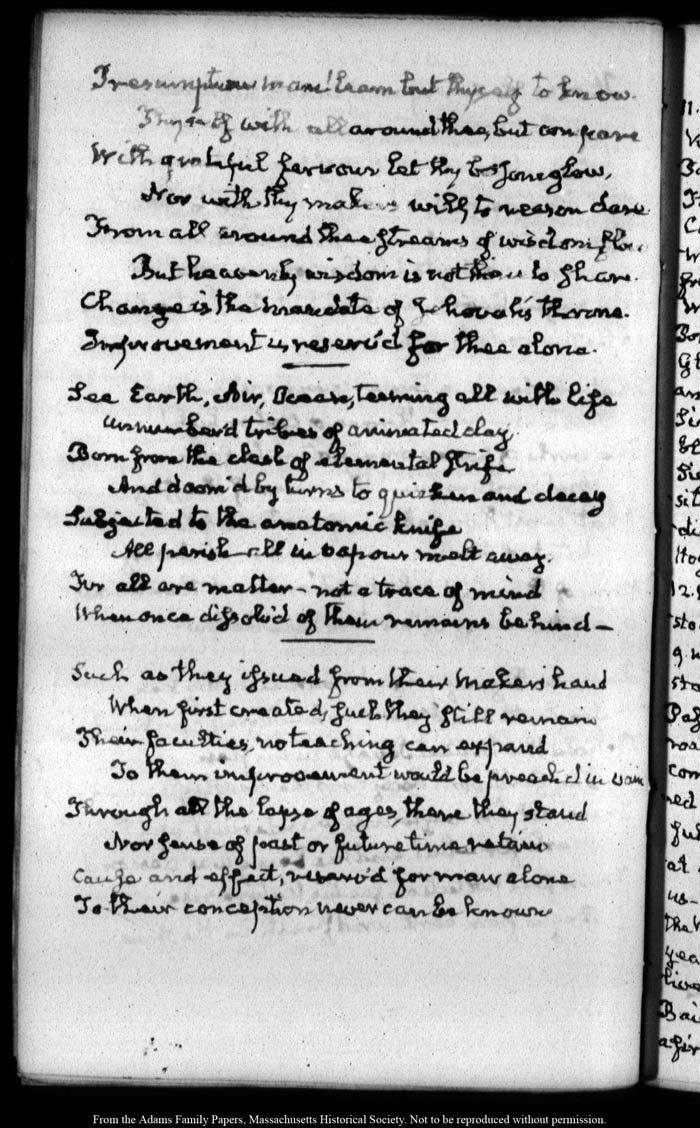 Presumptuous man! learn but thyself to know.
Thyself with all around thee, but compare
With grateful fervour let thy bosom glow,
Nor with thy maker's will, to reason dare
From all around thee streams of wisdom flow
But heavenly wisdom is not thine to share.
Change is the mandate of Jehovah's throne.
Improvement is reserv'd for thee alone.
See Earth, Air, Ocean, teeming all with life
Unnumber'd tribes of animated clay.
Born from the clash of elemental strife
And doom'd by turns to quicken and decay
Subjected to the anatomic knife
All perish—all in vapour melt away.
For all are matter—not a trace of mind
When once dissolv'd of them remains behind—
Such as they issued from their Makers hand
When first created, such they still remain
Their faculties, no teaching can expand
To them improvement would be preach'd in vain
Through all the lapse of ages, there they stand
Nor sense of past or future time retain
Cause and effect, reserv'd for man alone
To their conception never can be known
From the Adams Family Papers, Massachusetts Historical Society. Not to be reproduced without permission.